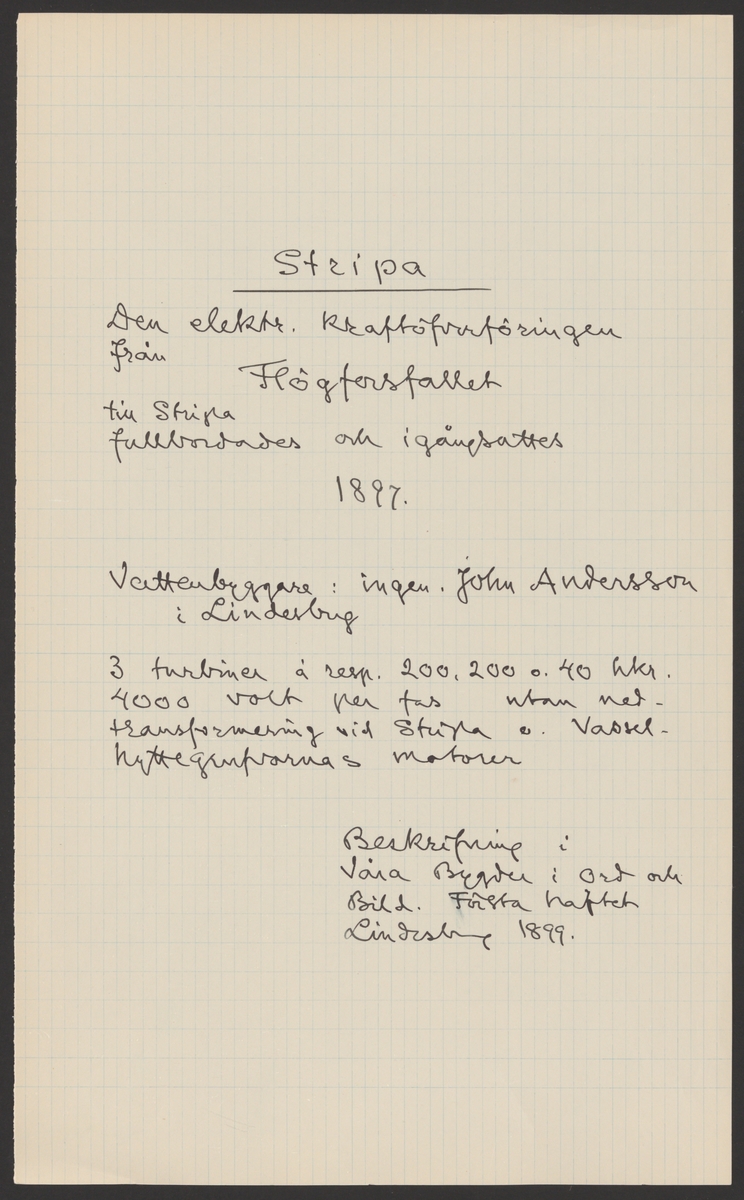 Stripa
Den elektr. kraftöfverföringen
från
Högforsfallet
till Stripa
fullbordades och igångsattes
1897.
Vattenbyggare : ingen. John Andersson
i Lindesbrg
3 turbiner à resp. 200, 200 o. 40 hkr.
4000 volt per fas utan ned-
transformering vid Stripa o. Vassel-
hyttegrufvornas motorer
Beskrifning i
Våra Bygder i Ord och
Bild. Första häftet
Lindesbrg 1899.